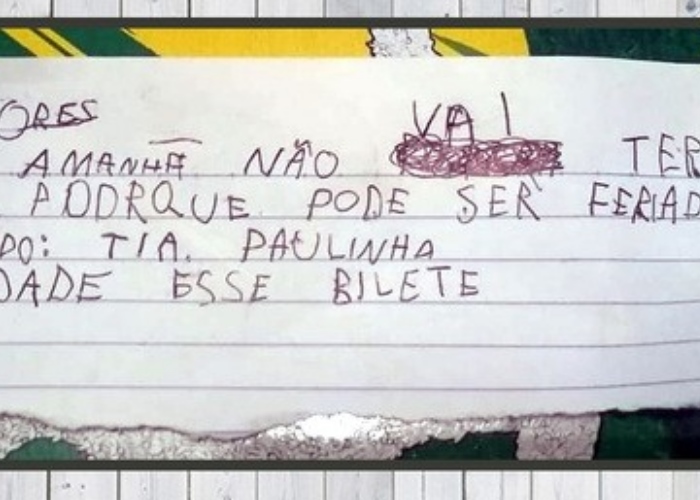 ORES
AMANHÃ NÃO VAI TER
PODRQUE PODE SER FERIAD
DO: TIA. PAULINHA
DADE ESSE BILETE